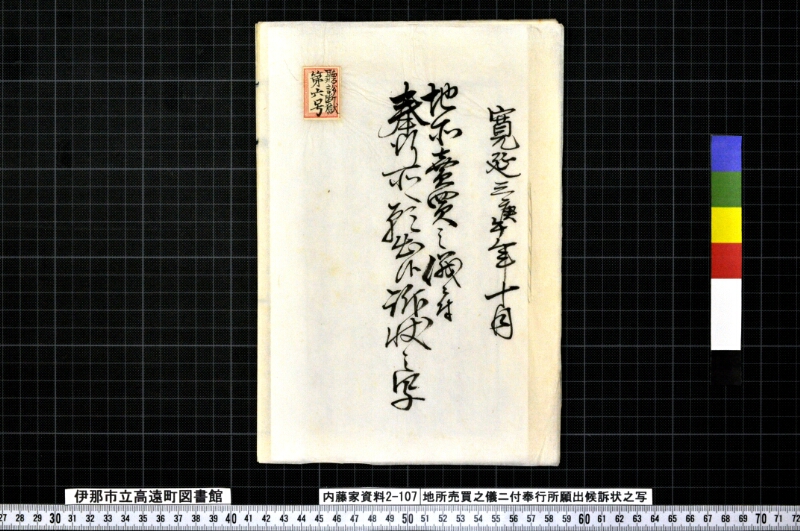 寛延三庚午年十月
地所賣買之儀ニ付
奉行所へ願出候訴状之写
第六号
伊那市立高遠町図書館
内藤家資料2-107
地所売買之儀ニ付奉行所願出候訴状之写
27 28 29 30 31 32 33 34 35 36 37 38 39 40 41 42 43 44 45 46 47 48 49 50 51 52 53 54 55 56 57 58 59 60 61 62 63 64 65 66 67 68 69 70 71 72